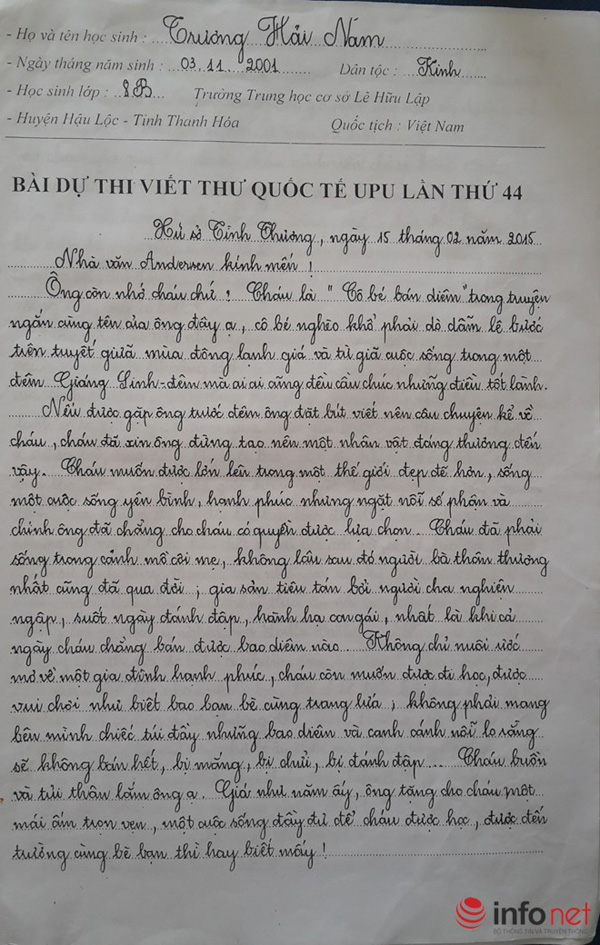 - Họ và tên học sinh : Trương Hải Nam
- Ngày tháng năm sinh : 03.11.2001 Dân tộc : Kinh
- Học sinh lớp : 8B Trường Trung học cơ sở Lê Hữu Lập
- Huyện Hậu Lộc - Tỉnh Thanh Hóa Quốc tịch : Việt Nam
BÀI DỰ THI VIẾT THƯ QUỐC TẾ UPU LẦN THỨ 44
Xứ sở Tình Thương, ngày 15 tháng 02 năm 2015
Nhà văn Andersen kính mến !
Ông còn nhớ cháu chứ ? Cháu là " Cô bé bán diêm" trong truyện
ngắn cùng tên của ông đây ạ, cô bé nghèo khổ phải dò dẫm lê bước
trên tuyết giữa mùa đông lạnh giá và từ giã cuộc sống trong một
đêm Giáng Sinh - đêm mà ai ai cũng đều cầu chúc những điều tốt lành.
Nếu được gặp ông trước đêm ông đặt bút viết nên câu chuyện kể về
cháu, cháu đã xin ông đừng tạo nên một nhân vật đáng thương đến
vậy. Cháu muốn được lớn lên trong một thế giới đẹp đẽ hơn, sống
một cuộc sống yên bình, hạnh phúc nhưng ngặt nỗi số phận và
chính ông đã chẳng cho cháu có quyền được lựa chọn. Cháu đã phải
sống trong cảnh mồ côi mẹ, không lâu sau đó người bà thân thương
nhất cũng đã qua đời ; gia sản tiêu tán bởi người cha nghiện
ngập, suốt ngày đánh đập, hành hạ con gái, nhất là khi cả
ngày cháu chẳng bán được bao diêm nào. Không chỉ nuôi ước
mơ về một gia đình hạnh phúc, cháu còn muốn được đi học, được
vui chơi như biết bao bạn bè cùng trang lứa ; không phải mang
bên mình chiếc túi đầy những bao diêm và canh cánh nỗi lo rằng
sẽ không bán hết, bị mắng, bị chửi, bị đánh đập.... Cháu buồn
và tủi thân lắm ông ạ. Giá như năm ấy, ông tặng cho cháu một
mái ấm trọn vẹn, một cuộc sống đầy đủ để cháu được học, được đến
trường cùng bè bạn thì hay biết mấy !
infonet
BỘ THÔNG TIN VÀ TRUYỀN THÔNG